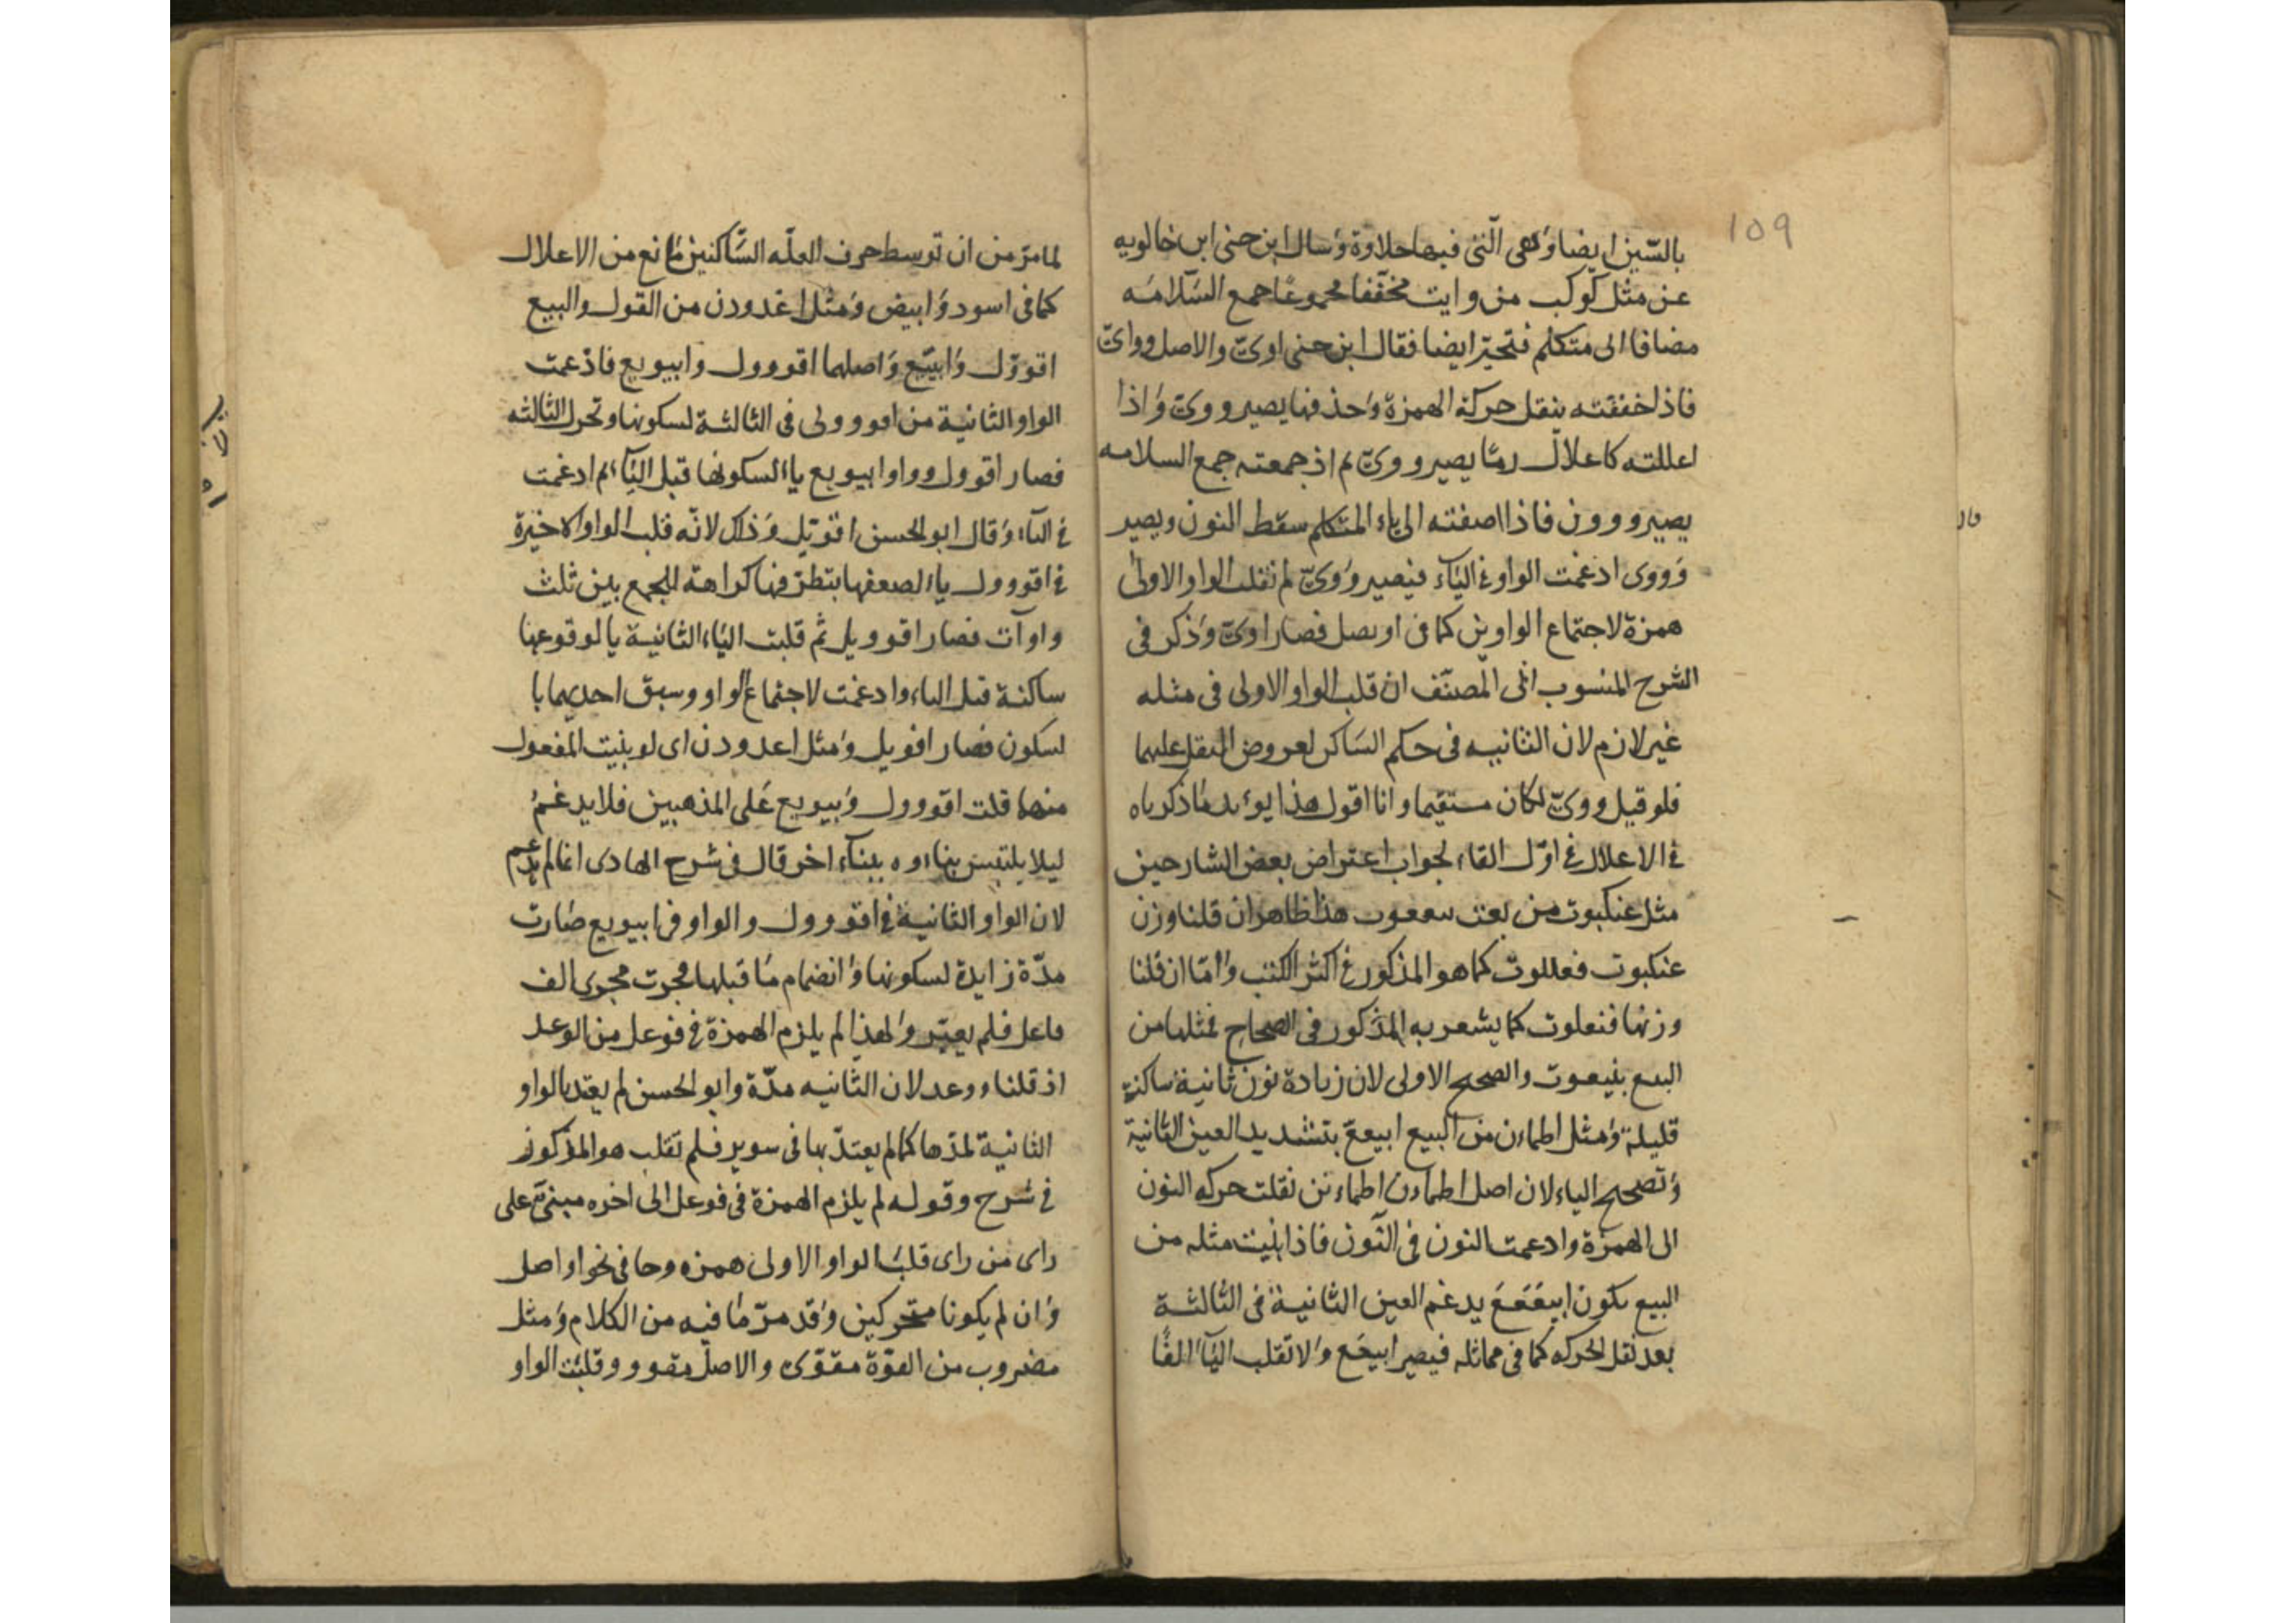 109
بالسّين ايضا وهى الّتى فيها حلاوة وسال ابن جنى ابن خالويه
عن مثل كوكب من وايت مخفّفا مجموعا جمع السّلامه
مضافا الى متكلم فتحيّر ايضا فقال ابن جنى اوىّ والاصل ووأىّ
فاذا خففته بنقل حركة الهمزة وحذفها يصير ووىّ واذا
اعللته كاعلال رمّا يصير ووىّ ثم اذ جمعته جمع السلامه
يصير وون فاذا اضفته الى ياء المتكلم سقط النون ويصير
وووى ادغمت الواو فى اليآء فيصير ووىّ ثم تقلب الواو الاولى
همزة لاجتماع الواوين كما فى اويصل فصار اوىّ وذكر فى
الشرح المنسوب الى المصنّف ان قلب الواو الاولى فى مثله
غير لازم لان الثانيه فى حكم السّاكن لعروض النقل عليها
فلو قيل ووىّ لكان مستقيما وانا اقول هذا يؤيد ما ذكرناه
فى الاعلال فى اوّل القاء لجواب اعتراض بعض الشارحين
مثل عنكبوت من بعت بيععوت هذا ظاهر ان قلنا وزن
عنكبوت فعللوت كما هو المذكور فى اكثر الكتب وامّا ان قلنا
وزنها فنعلوت كما يشعر به المذكور فى الصحاح فمثلها من
البيع بنيعوت والصحيح الاولى لان زيادة نون ثانية ساكنة
قليلة ومثل اطمان من البيع ابيععّ بتشديد العين الثانية
وتصحيح الياء لان اصل اطمان اطماءنن نقلت حركه النون
الى الهمزة وادعمت النون فى النّون فاذا بنيت مثله من
البيع يكون ابيععع يدغم العين الثانية فى الثالثة
بعد نقل الحركه كما فى مماثله فيصير ابيعع ولا تقلب اليآء الفًا
لما مرّ من ان توسط حرف العلّه السّاكنين مانع من الاعلال
كما فى اسود وابيض ومثل اغدودن من القول والبيع
اقووّل وابيّيع واصلهما اقووول وابيويع فادغمت
الواو الثانية من اقووول فى الثالثة لسكونها وتحرك الثالثه
فصار اقوول وواو ابيويع ياء لسكونها قبل اليآء ثم ادغمت
فى الياء وقال ابو الحسن اقويّل وذلك لانّه قلب الواو الاخيرة
فى اقووول ياء لضعفها بتطرّفها كراهة للجمع بين ثلث
واوآت فصار اقوويل ثم قلبت الياء الثانية يا لوقوعها
ساكنة قبل الياء وادغمت لاجتماع الواو وسبق احديهما با
لسكون فصار اقويل ومثل اغدودن اى لو بنيت المفعول
منهما قلت اقووول وابيويع على المذهبين فلا يدغم
ليلا يلتبس بناءوه ببناء اخر قال فى شرح الهادى انما لم يدغم
لان الواو الثانية فى اقووول والواو فى ابيويع صارت
مدّة زايدة لسكونها وانضمام ما قبلها فجرت مجرى الف
فاعل فلم يعتبر ولهذا لم يلزم الهمزة فى فوعل من الوعد
اذ قلنا ووعد لان الثانيه مدّة وابو الحسن لم يعتد بالواو
الثانية لمدّها كما لم يعتدّ بها فى سوير فلم تقلب هو المذكور
فى شرح وقوله لم يلزم الهمزة فى فوعل الى اخره مبنىّ على
راى من راى قلب الواو الاولى همزه وحا فى نحو اواصل
وان لم يكونا متحركين وقد مرّ ما فيه من الكلام ومثل
مضروب من القوّة مقوّى والاصل مقووو وقلبت الواو